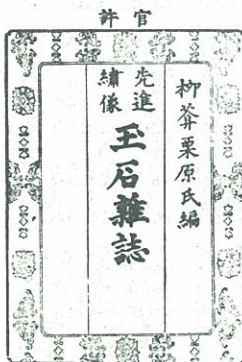 官許
柳葊栗原氏編
先進
繡像
玉石雜誌